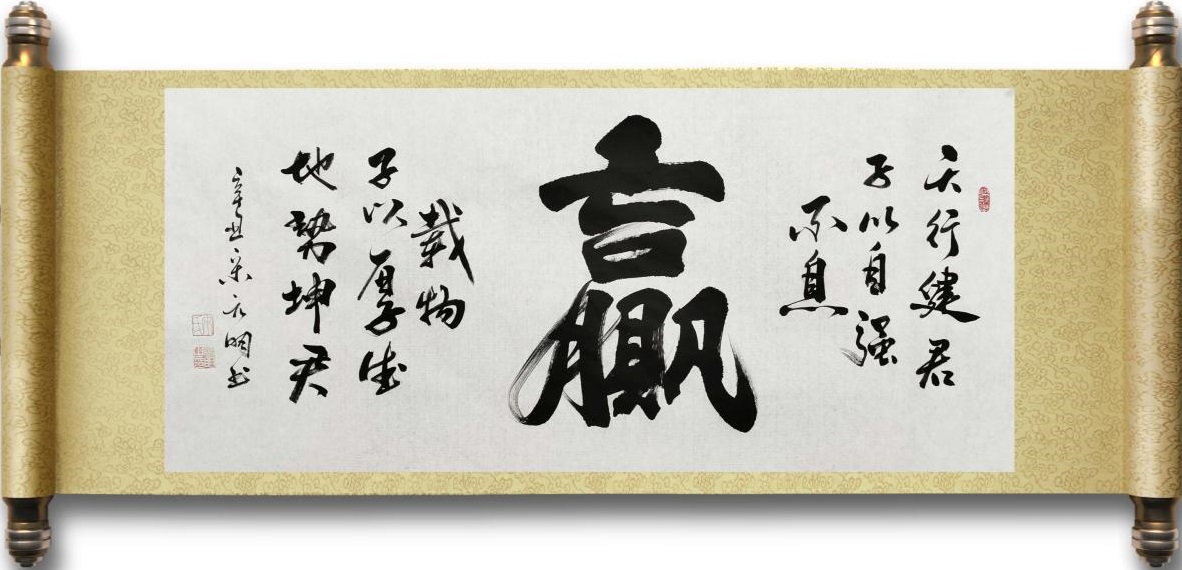 天行健君
子以自强
不息
贏
地勢坤君
子以厚德
載物
辛丑 明书